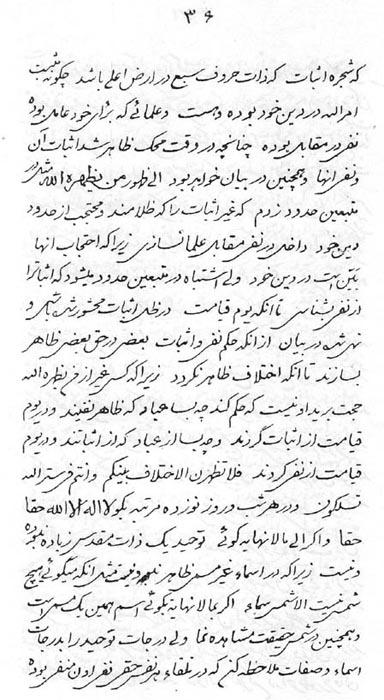 ۳۶
که شجره اثبات که ذات حروف سبع در ارض اعلی باشد چگونه مثبت
امر الله در دین خود بوده و هست و علمائی که برای خود عامل بوده
نفی در مقابل بوده چنانچه در وقت محک ظاهر شد اثبات آن
و نفی آنها و همچنین در بیان خواهد بود الی ظهور من یظهره الله مثل در
متبعین حدود زدم که غیر اثبات را که ظلامند و محتجب از حدود
دین خود داخلی در نفی مقابل علما نسازی زیرا که احتجاب آنها
بیّن است در دین خود ولی اشتباه در متبعین حدود میشود که اثبات را
از نفی بشناسی تا آنکه یوم قیامت در ظل اثبات محشور شوی و
نهی شده در بیان از آنکه حکم نفی و اثبات بعضی در حق بعضی ظاهر
بسازند تا آنکه اختلاف ظاهر نگردد زیرا که کسی غیر از من یظهره الله
حجت بر ید او نیست که حکم کند چه بسا عباد که ظاهر نفیند و در یوم
قیامت از اثبات گردند و چه بسا از عباد که از اثباتند و در یوم
قیامت از نفی گردند فلا تظهرن الاختلاف بینکم و انتم فی سبل الله
تسلکون و در هر شب و روز نوزده مرتبه بگو لا اله الا الله حقا
حقا و اگر الی ما لا نهایه گوئی توحید یک ذات مقدس زیاده نبوده
و نیست زیرا که در اسماء غیر مسمی ظاهر نبوده و نیست مثل آنکه میگوئی هیچ
شمس نیست الا شمس سماء اگر بما لا نهایه بگوئی اسم همین یک مسمی است
و همچنین در شمس حقیقت مشاهده نما ولی درجات توحید را بدرجات
اسماء و صفات ملاحظه کن که در تلقاء هر نفسی حقی نفی ادون منفی بوده